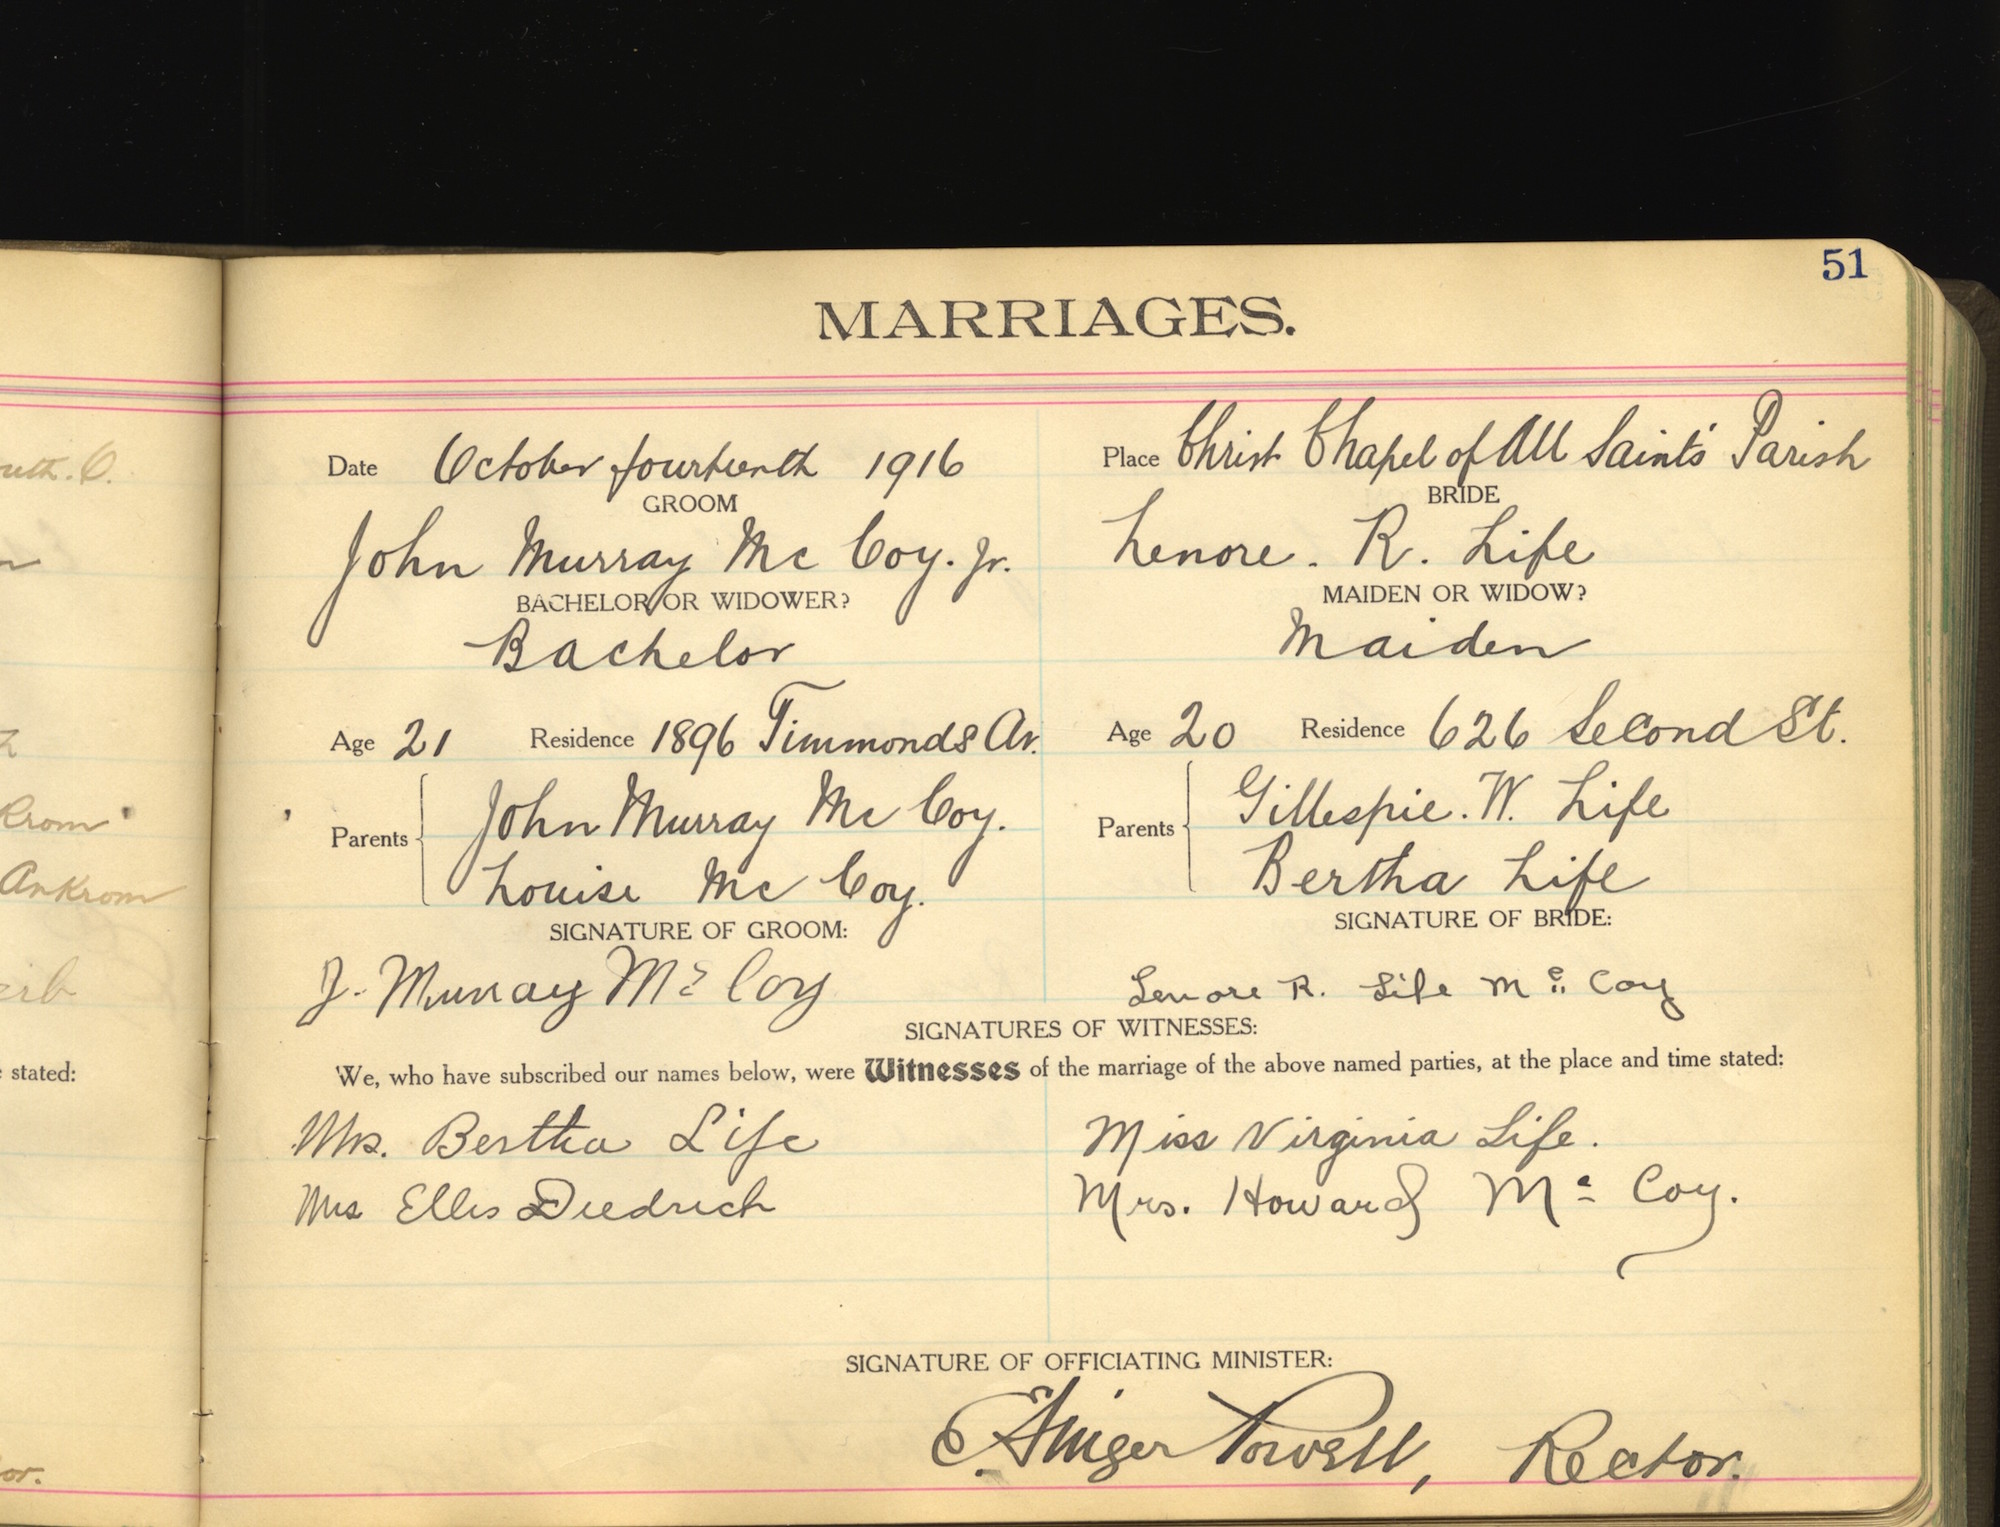 51
MARRIAGES.
Date October fourteenth 1916
Place Christ Chapel of All Saints' Parish
GROOM
BRIDE
John Murray Mc Coy. Jr.
Lenore. R. Life
BACHELOR OR WIDOWER?
MAIDEN OR WIDOW?
Bachelor
Maiden
Age 21 Residence 1896 Timmonds Av.
Age 20 Residence 626 Second St.
Parents
John Murray Mc Coy.
Louise Mc Coy.
Parents
Gillespie. W. Life
Bertha Life
SIGNATURE OF GROOM:
SIGNATURE OF BRIDE:
J. Murray Mc Coy
Lenore R. Life Mc Coy
SIGNATURES OF WITNESSES:
We, who have subscribed our names below, were Witnesses of the marriage of the above named parties, at the place and time stated:
Mrs. Bertha Life
Miss Virginia Life.
Mrs Ellis Diedrich
Mrs. Howard Mc Coy.
SIGNATURE OF OFFICIATING MINISTER:
E. Ainger Powell, Rector.
stated:
Ankrom